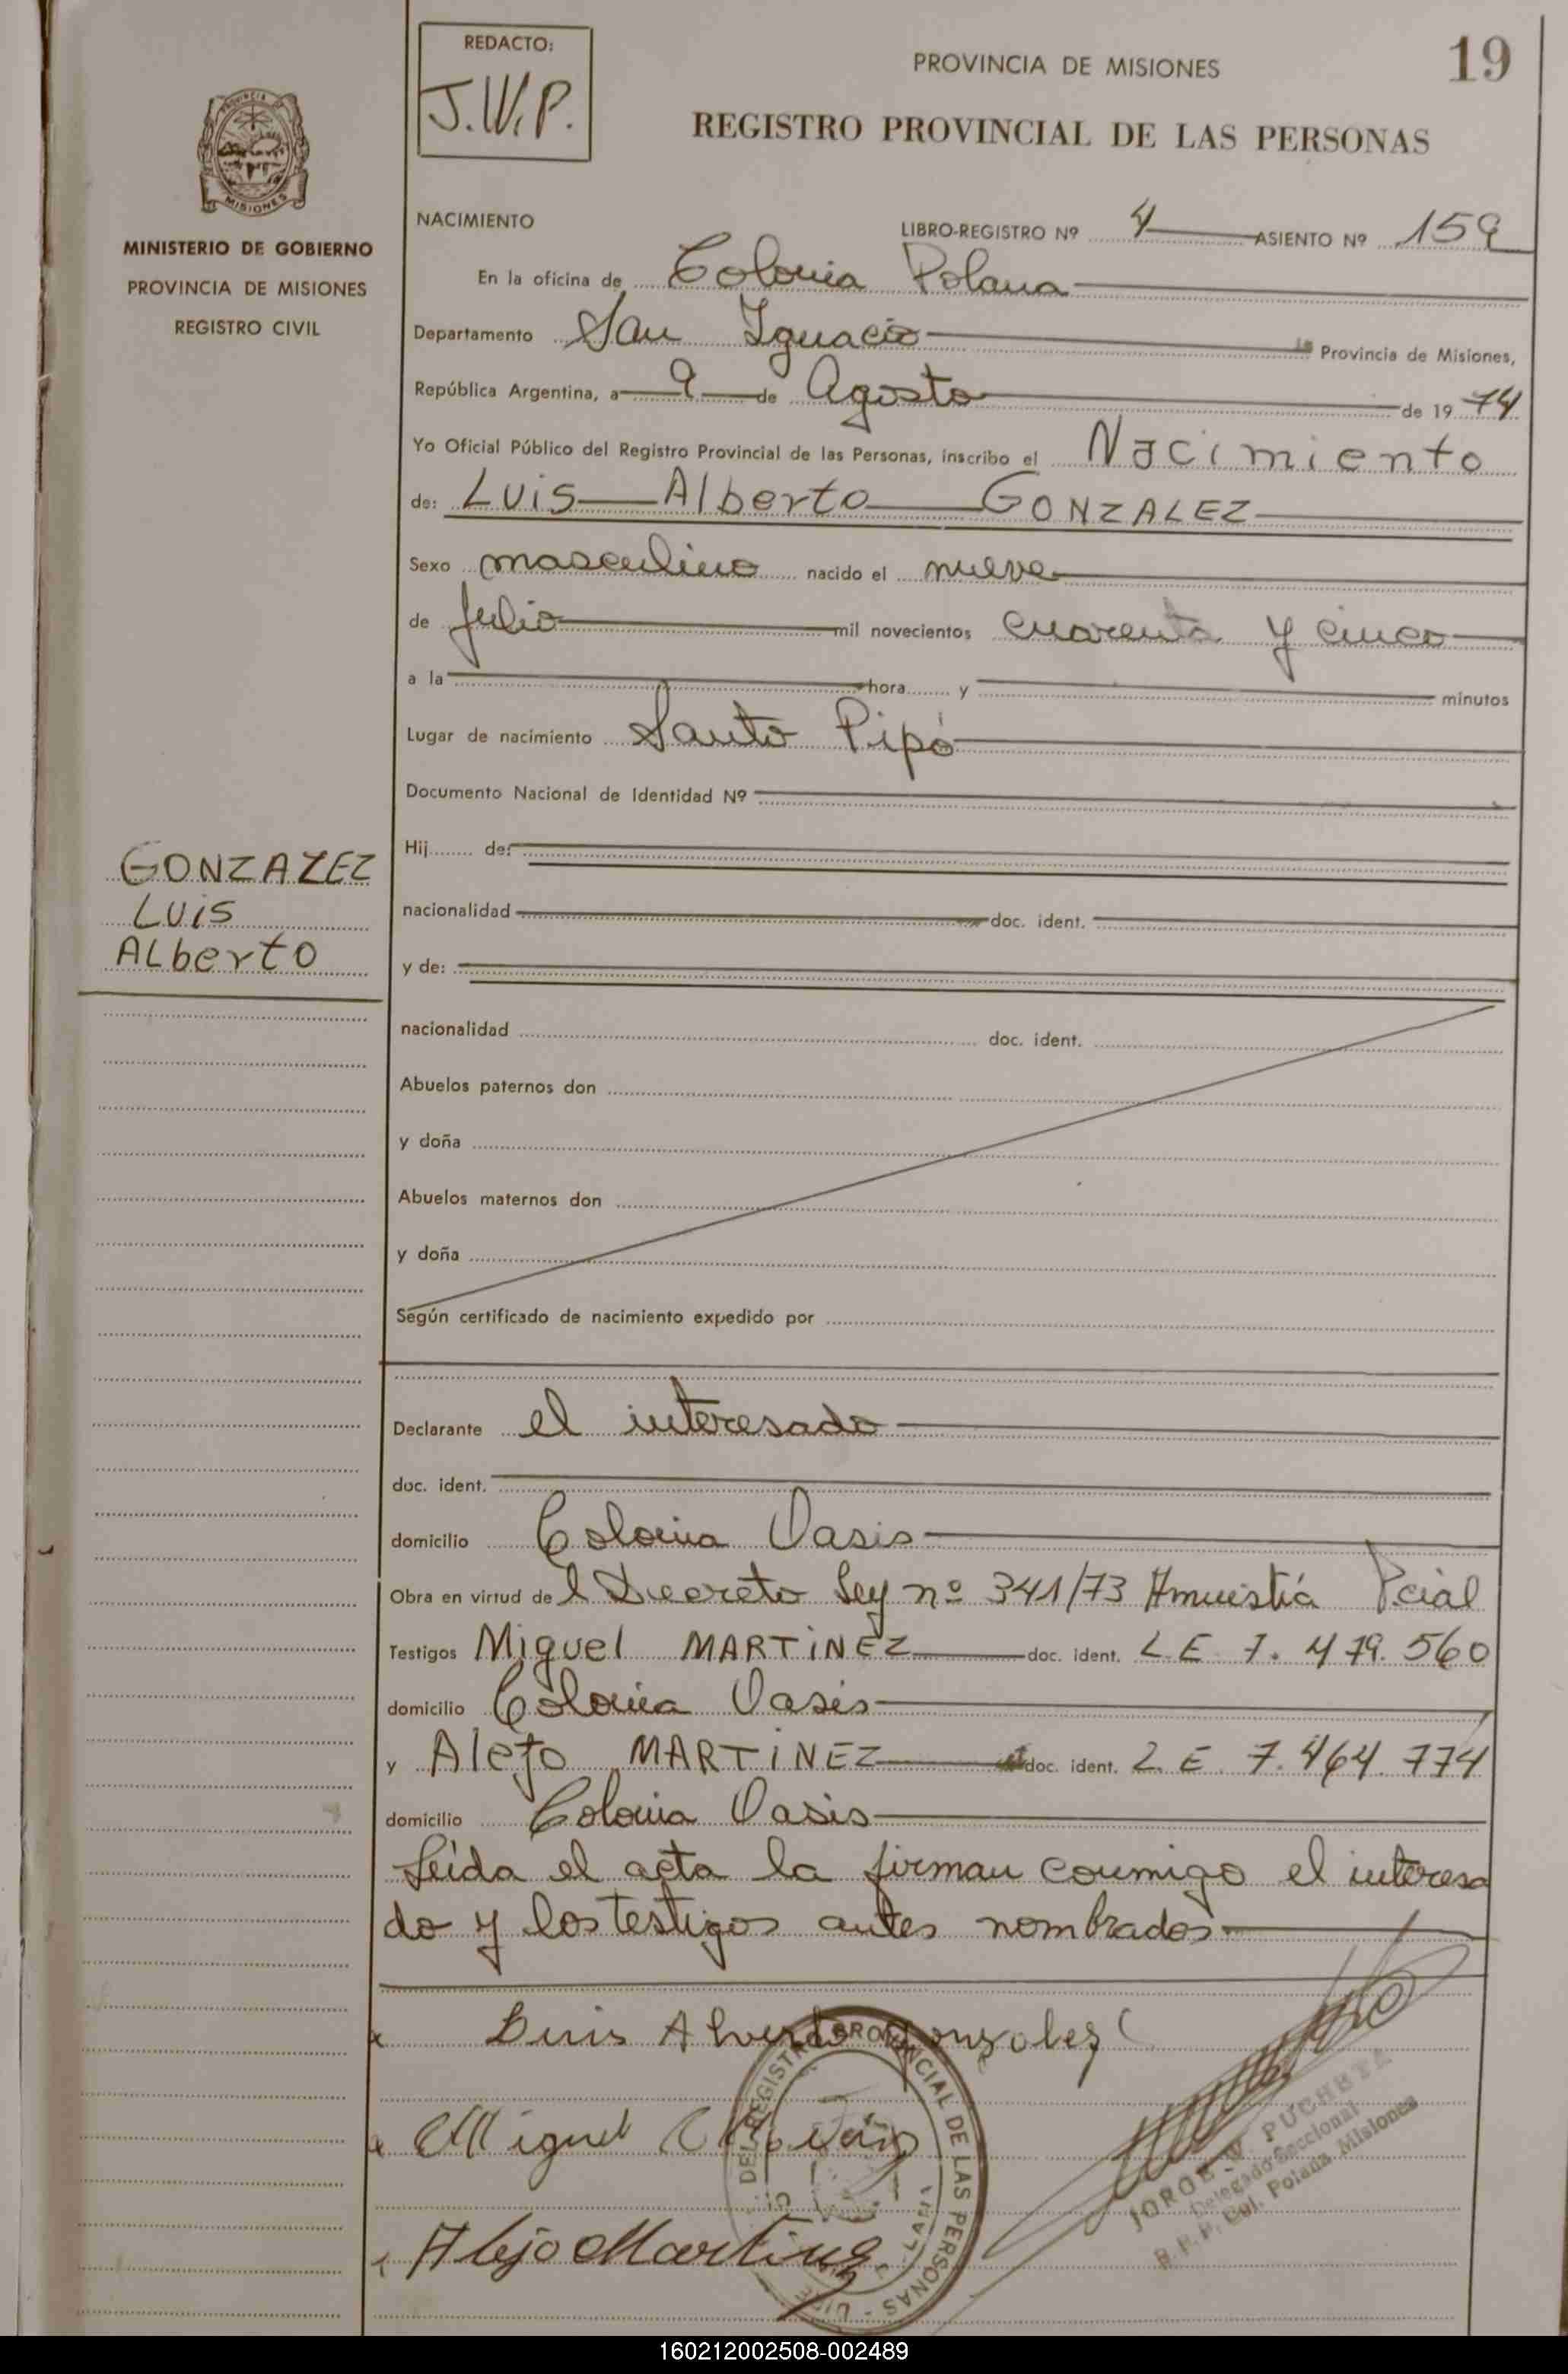 REDACTO:
J.W.P.
PROVINCIA DE MISIONES
19
REGISTRO PROVINCIAL DE LAS PERSONAS
PROVINCIA
MISIONES
MINISTERIO DE GOBIERNO
PROVINCIA DE MISIONES
REGISTRO CIVIL
NACIMIENTO
LIBRO-REGISTRO Nº 4 ASIENTO Nº 159
En la oficina de Colonia Polana
Departamento San Ignacio Provincia de Misiones,
República Argentina, a 9 de Agosto de 19 74
Yo Oficial Público del Registro Provincial de las Personas, inscribo el Nacimiento
de: Luis Alberto GONZALEZ
Sexo masculino nacido el nueve
de Julio mil novecientos cuarenta y cinco
a la hora y minutos
Lugar de nacimiento Santo Pipó
Documento Nacional de Identidad Nº
Hij de:
GONZALEZ
Luis
ALberto
nacionalidad doc. ident.
y de:
nacionalidad doc. ident.
Abuelos paternos don
y doña
Abuelos maternos don
y doña
Según certificado de nacimiento expedido por
Declarante el interesado
doc. ident.
domicilio Colonia Oasis
Obra en virtud de l Decreto Ley nº 341/73 Amnistiá Pcial
Testigos Miguel MARTiNEZ doc. ident. L.E. 7.479.560
domicilio Colonia Oasis
y Alejo MARTiNEZ doc. ident. L.E. 7.464.774
domicilio Colonia Oasis
Leida el acta la firman conmigo el interesa
do y los testigos antes nombrados.
Luis Alverto Gonzalez
Miguel
Alejo Martinez
DEL REGISTRO PROVINCIAL DE LAS PERSONAS
JORGE W. PUCHETA
Delegado Seccional
R.P.P. Col. Polana Misiones
160212002508-002489